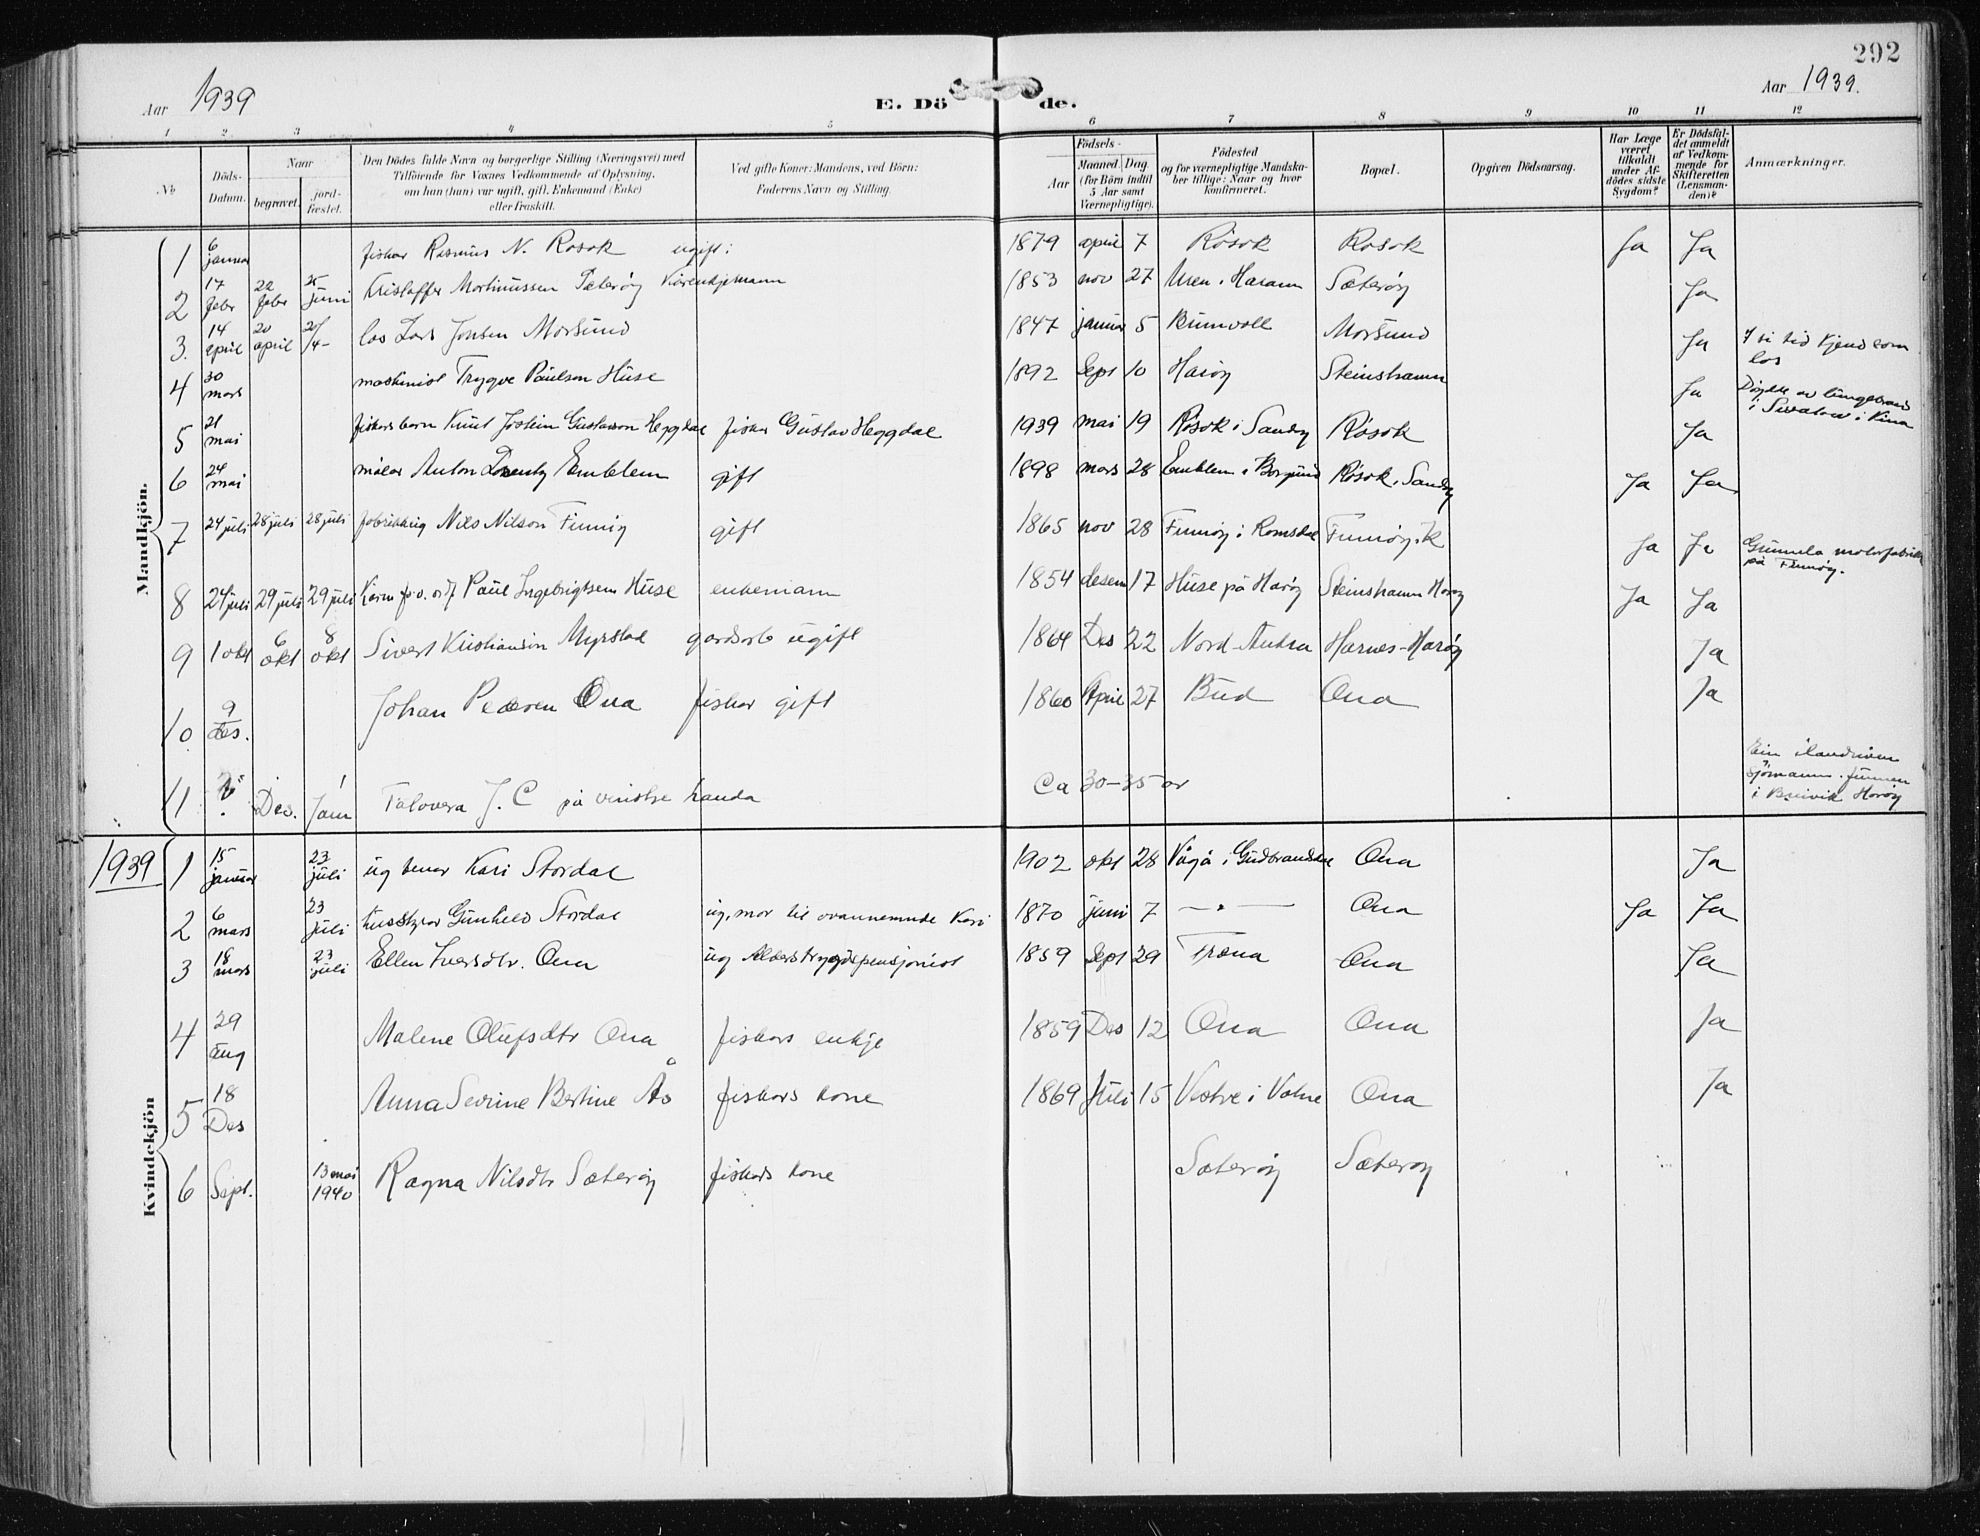 292
Aar 1939
E. Döde.
Aar 1939.
1 2 3 4 5 6 7 8 9 10 11 12
No
Döds-Datum.
Naar
begravet.
jord-fæstet.
Den Dödes fulde Navn og borgerlige Stilling (Næringsvei) med
Tilföiende for Voxnes Vedkommende af Oplysning,
om han (hun) var ugift, gift, Enkemand (Enke)
eller fraskilt.
Ved gifte Koner: Mandens, ved Börn:
Faderens Navn og Stilling.
Födsels-
Aar
Maaned Dag
(for Börn indtil
5 Aar samt
Værnepligtige).
Födested
og for værnepligtige Mandska-
ber tillige: Naar og hvor
konfirmeret.
Bopæl.
Opgiven Dödsaarsag.
Har Læge
været
tilkaldt
under Af-
dödes sidste
Sygdom?
Er Dödsfal-
det anmeldt
af Vedkom-
mende for
Skifteretten
(Lensman-
den)?
Anmærkninger.
Mandkjön.
1 6 januar fiskar Rasmus N. Rösok ugift 1879 april 7 Rösok Rösok Ja Ja
2 17 febr 22 febr 25 juni Kristoffer Martinussen Sæterøy 1853 nov 27 Haram Sæterøy Ja
3. 14 april 20 april 20/4 los Lars Jonsen Morsund 1847 januar 5 Morsund Ja I si tid kjend som los
4 30 mars maskinist Trygve Paulson Huse 1892 Sept 10 Harøy Steinshamn Ja Døydde av i Kina
5 21 mai fiskarbarn Knut Jostein Gustavson Heggdal fiskar Gustav Heggdal 1939 mai 19 Røsok i Sandøy Røsok Ja
6 24 mai målar Anton Emblem gift 1898 mars 28 Emblem i Borgund Røsok, Sandøy Ja Ja
7 24 juli 28 juli 28 juli Nils Nilson Finnøy gift 1865 nov 28 Finnøy i Romsdal Finnøy Ja Ja motorfabrikk på Finnøy.
8 24 juli 29 juli 29 juli Paul Ingebrigtsen Huse enkemann 1854 desem 17 Huse på Harøy Steinshamn Harøy Ja Ja
9 1 okt 6 okt 8 okt Sivert Kristiansen Myrstad gardsarb ugift 1864 Des 22 Nord-Aukra Harnes-Harøy Ja
10 9 des. Johan Pedersen Ona fiskar gift 1860 April 27 Bud Ona Ja
11 ? Des. Jan Talovera J. C på vinstre handa Ca 30-35 år Ein ilandriven sjømann. funnen i Breivik Harøy
1939
Kvindekjön
1 15 januar 23 juli ug Kari Stordal 1902 okt 28 Vågå i Gudbrandsdal Ona Ja
2 6 mars 23 juli Gunhild Stordal ug, mor til ovannemnde Kari 1870 juni 7 — " — Ona Ja Ja
3 18 mars 23 juli Ellen Iversdtr. Ona ug Alderstrygdspensjonist 1859 Sept 29 Træna Ona Ja
4 29 Aug Malene Olufsdtr Ona fiskars enkje 1859 Des 12 Ona Ona Ja
5 18 Des Anna Sevrine Bertine Ås fiskars kone 1869 Juli 15 Vestre i Vatne Ona Ja
6 Sept. 13 mai 1940 Ragna Nilsdtr Sæterøy fiskars kone Sæterøy Sæterøy